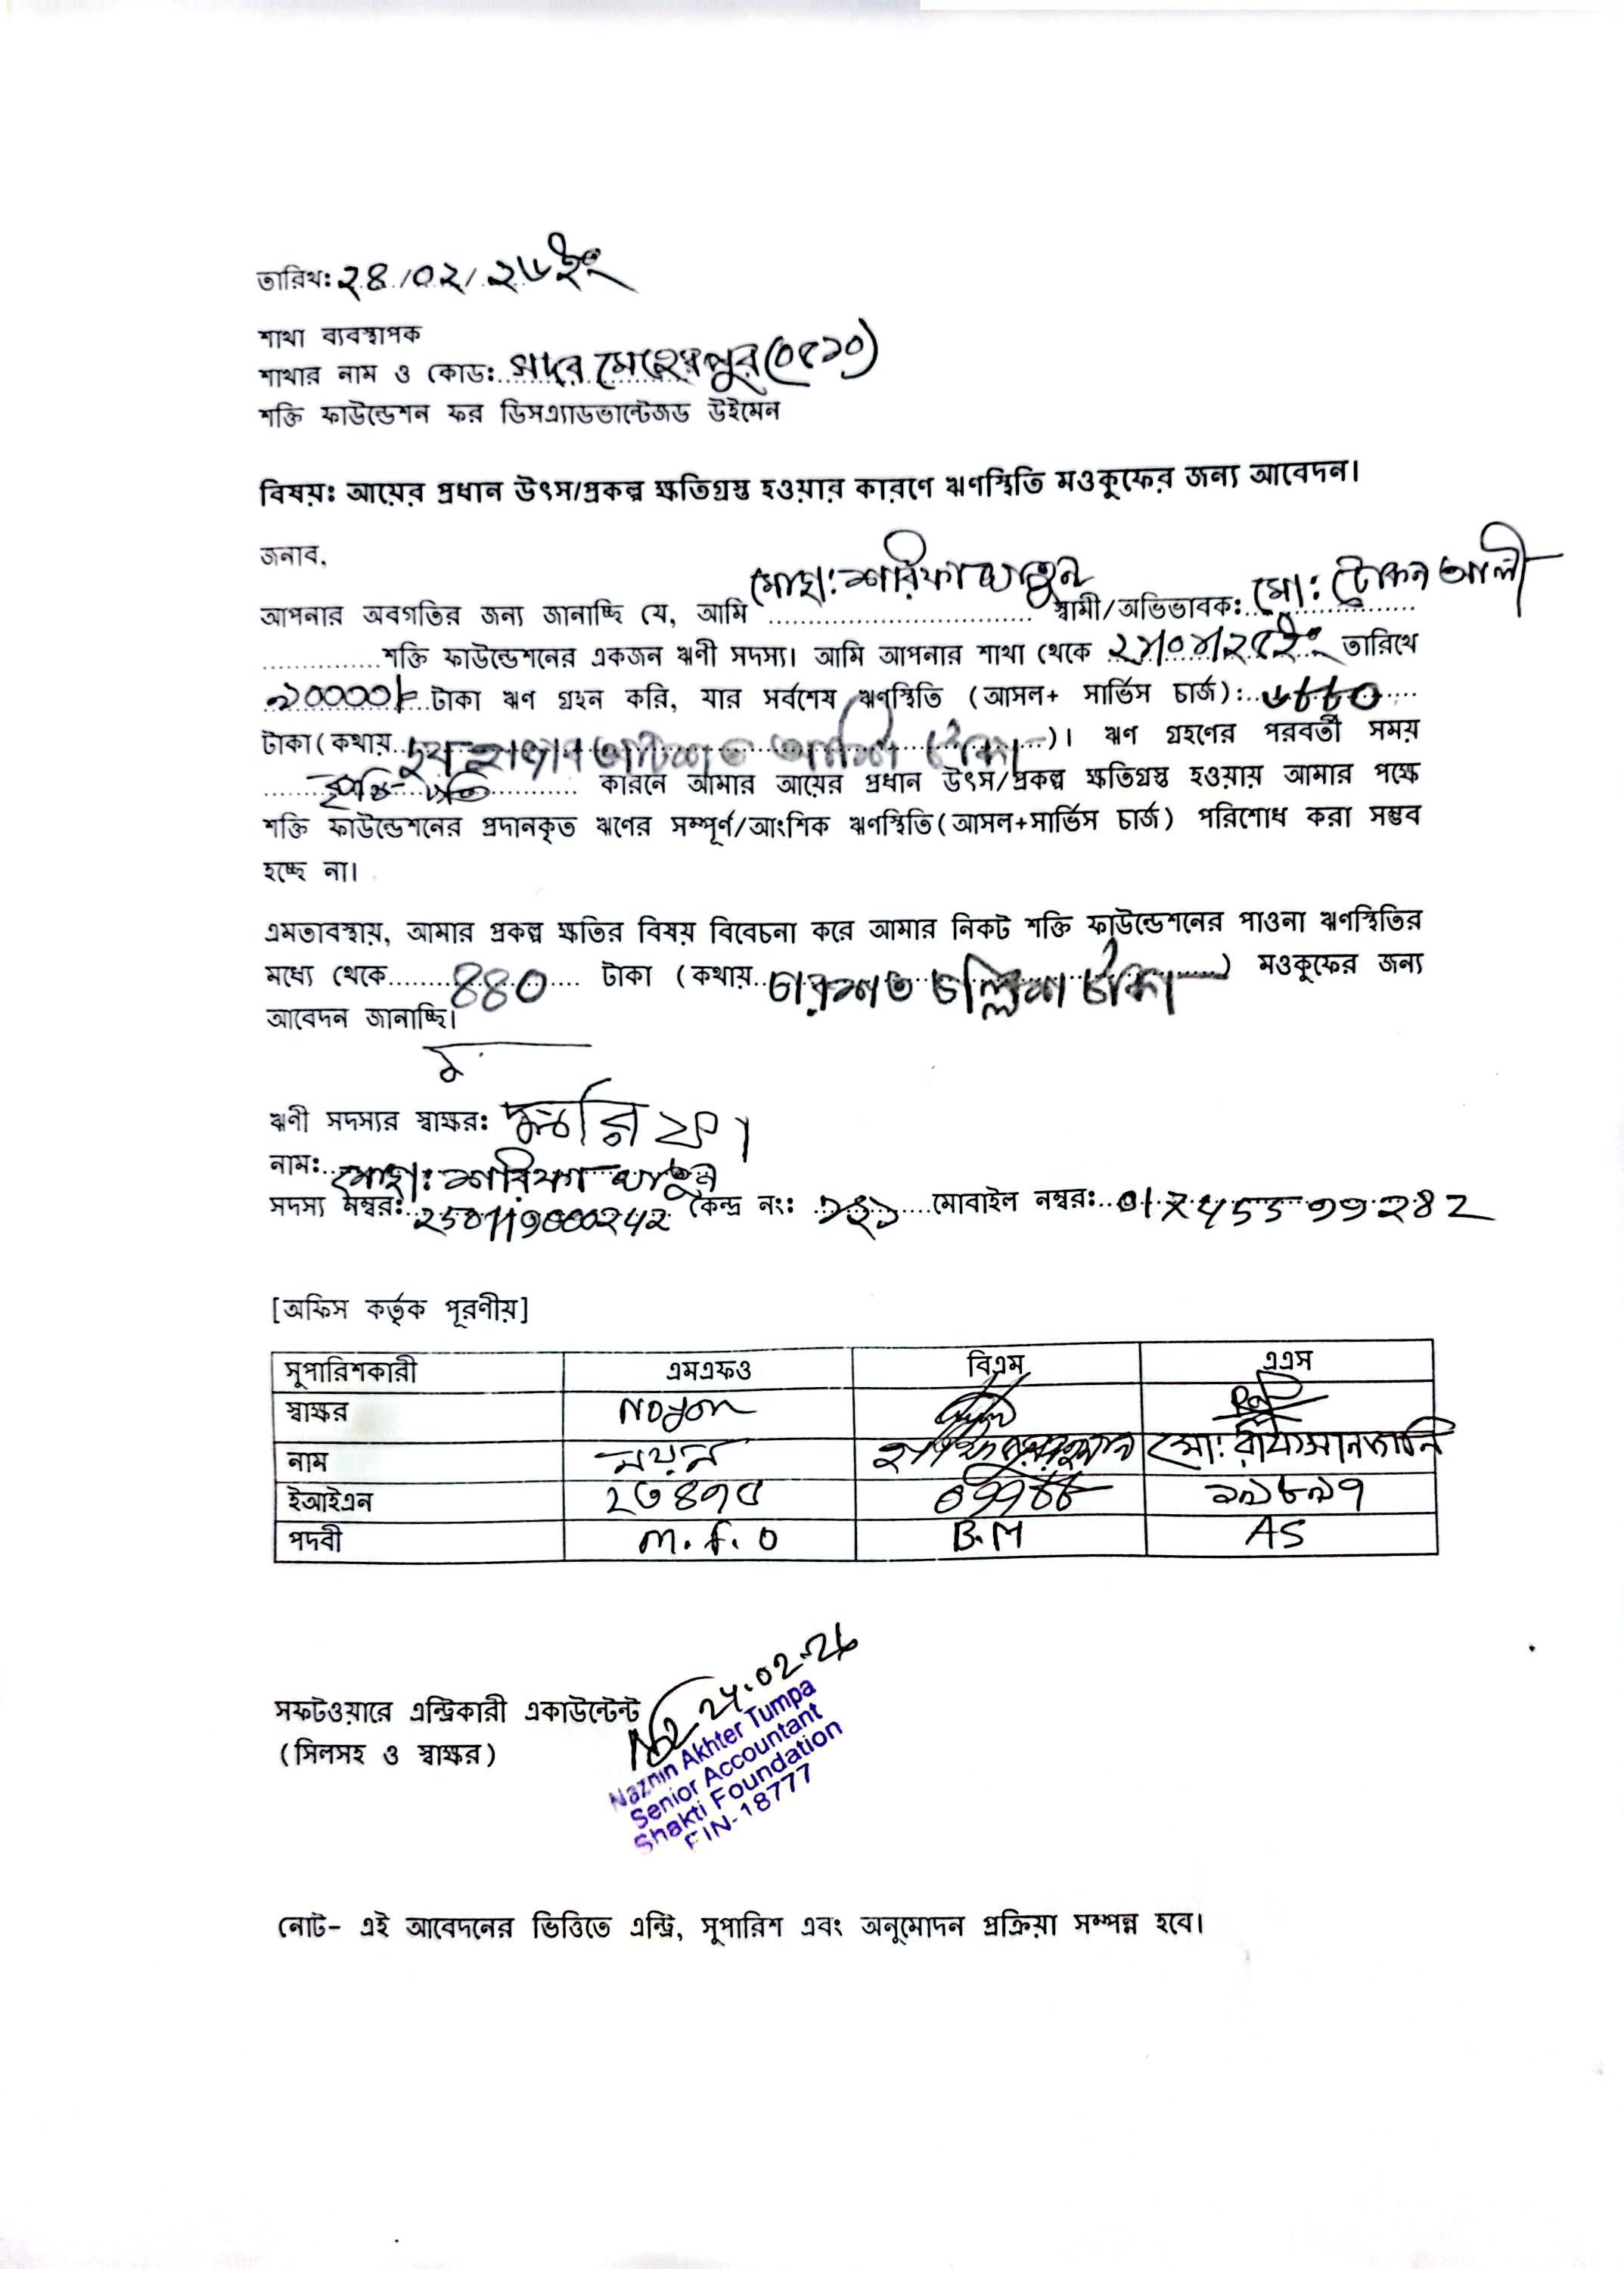 তারিখ: ২৪/০২/২৬ ইং
শাখা ব্যবস্থাপক
শাখার নাম ও কোড: সদর মেহেরপুর (০৫১০)
শক্তি ফাউন্ডেশন ফর ডিসএ্যাডভান্টেজড উইমেন
বিষয়ঃ আয়ের প্রধান উৎস/প্রকল্প ক্ষতিগ্রস্ত হওয়ার কারণে ঋণস্থিতি মওকুফের জন্য আবেদন।
জনাব,
আপনার অবগতির জন্য জানাচ্ছি যে, আমি মোছা: শরিফা খাতুন স্বামী/অভিভাবক: মো: টোকন আলী
শক্তি ফাউন্ডেশনের একজন ঋণী সদস্য। আমি আপনার শাখা থেকে তারিখে
টাকা ঋণ গ্রহন করি, যার সর্বশেষ ঋণস্থিতি (আসল+ সার্ভিস চার্জ):
টাকা (কথায় হাজার আটশত আশি টাকা)। ঋণ গ্রহণের পরবর্তী সময়
কারনে আমার আয়ের প্রধান উৎস/প্রকল্প ক্ষতিগ্রস্ত হওয়ায় আমার পক্ষে
শক্তি ফাউন্ডেশনের প্রদানকৃত ঋণের সম্পূর্ণ/আংশিক ঋণস্থিতি(আসল+সার্ভিস চার্জ) পরিশোধ করা সম্ভব
হচ্ছে না।
এমতাবস্থায়, আমার প্রকল্প ক্ষতির বিষয় বিবেচনা করে আমার নিকট শক্তি ফাউন্ডেশনের পাওনা ঋণস্থিতির
মধ্যে থেকে 880 টাকা (কথায় চারশত চল্লিশ টাকা) মওকুফের জন্য
আবেদন জানাচ্ছি।
ঋণী সদস্যর স্বাক্ষর: শরিফা
নাম: মোছা: শরিফা খাতুন
সদস্য নম্বর: কেন্দ্র নং: মোবাইল নম্বর:
[অফিস কর্তৃক পূরণীয়]
সুপারিশকারী এমএফও বিএম এএস
স্বাক্ষর Noyon
নাম নয়ন মো:
ইআইএন ২৩৪৭৫ ১৯৮৯৭
পদবী M.F.O B.M AS
সফটওয়ারে এন্ট্রিকারী একাউন্টেন্ট
(সিলসহ ও স্বাক্ষর)
24.02.26
Naznin Akhter Tumpa
Senior Accountant
Shakti Foundation
EIN-18777
নোট- এই আবেদনের ভিত্তিতে এন্ট্রি, সুপারিশ এবং অনুমোদন প্রক্রিয়া সম্পন্ন হবে।